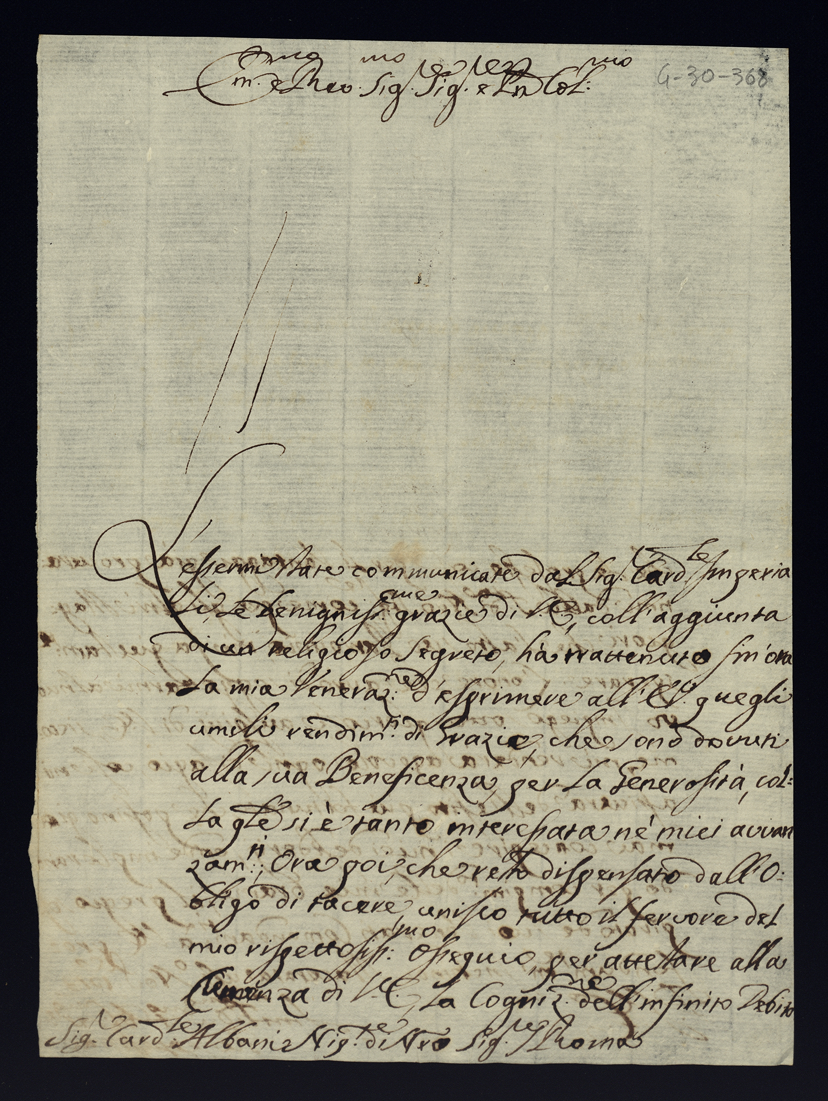 G-30-368
Em.mo e R.mo Sig.re Sig.re e Pron Col:mo
L'essermi state communicate dal Sig.r Card.le Imperia
li, le benigniss:me grazie di V.E., coll'aggiunta
di un religioso segreto, hà trattenuto fin'ora
la mia Veneraz:ne d'esprimere all'E.V. quegli
umili rendim.ti di Grazie, che sono dovuti
alla sua Beneficenza, per la Generosità, col=
la qle si è tanto interessata ne' miei avvan
zam.ti; Ora poi, che resto dispensato dall'O=
bligo di tacere, unisco tutto il fervore del
mio rispettosiss:mo Ossequio, per attestare alla
Clemenza di V.E., la Cogniz.ne dell'infinito Debito
Sig.r Card.le Albani Nip.te di Nro Sig.re Roma